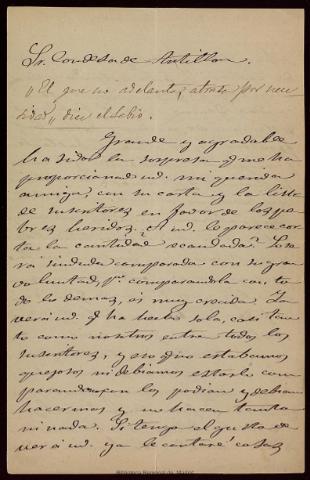 Sr. Condesa de Antillon.
"El que no adelanta, atrasa por nece
sidad", dice el sabio.
Grande y agradable
ha sido la sorpresa q. me ha
proporcionado ud. mi querida
amiga, con su carta y la lista
de suscritores en favor de los po
bres heridos. ¿A ud. le parece cor
ta la cantidad recaudada? Lo se
rá sin duda comparada con su gran
voluntad, p.º comparandola con to
do lo demas, es muy crecida. Ya
verá ud. q. ha hecho sola, casi tan
to como nosotros entre todos los
suscritores, y eso q. no estabamos
quejosos ni debiamos estarlo com
parandonos con los podian y debian
hacer mas y no hacen tanto
ni nada. Si tengo el gusto de
ver á ud. ya le contaré cosas
Biblioteca Regional de Madrid